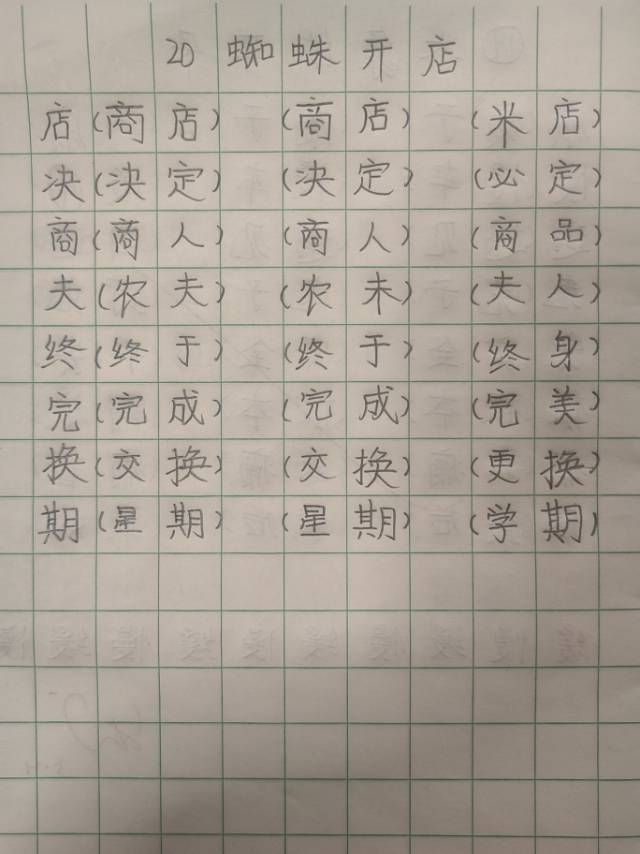 20 蜘蛛开店
店(商店) (商店) (米店)
决(决定) (决定) (必定)
商(商人) (商人) (商品)
夫(农夫) (农未) (夫人)
终(终于) (终于) (终身)
完(完成) (完成) (完美)
换(交换) (交换) (更换)
期(星期) (星期) (学期)